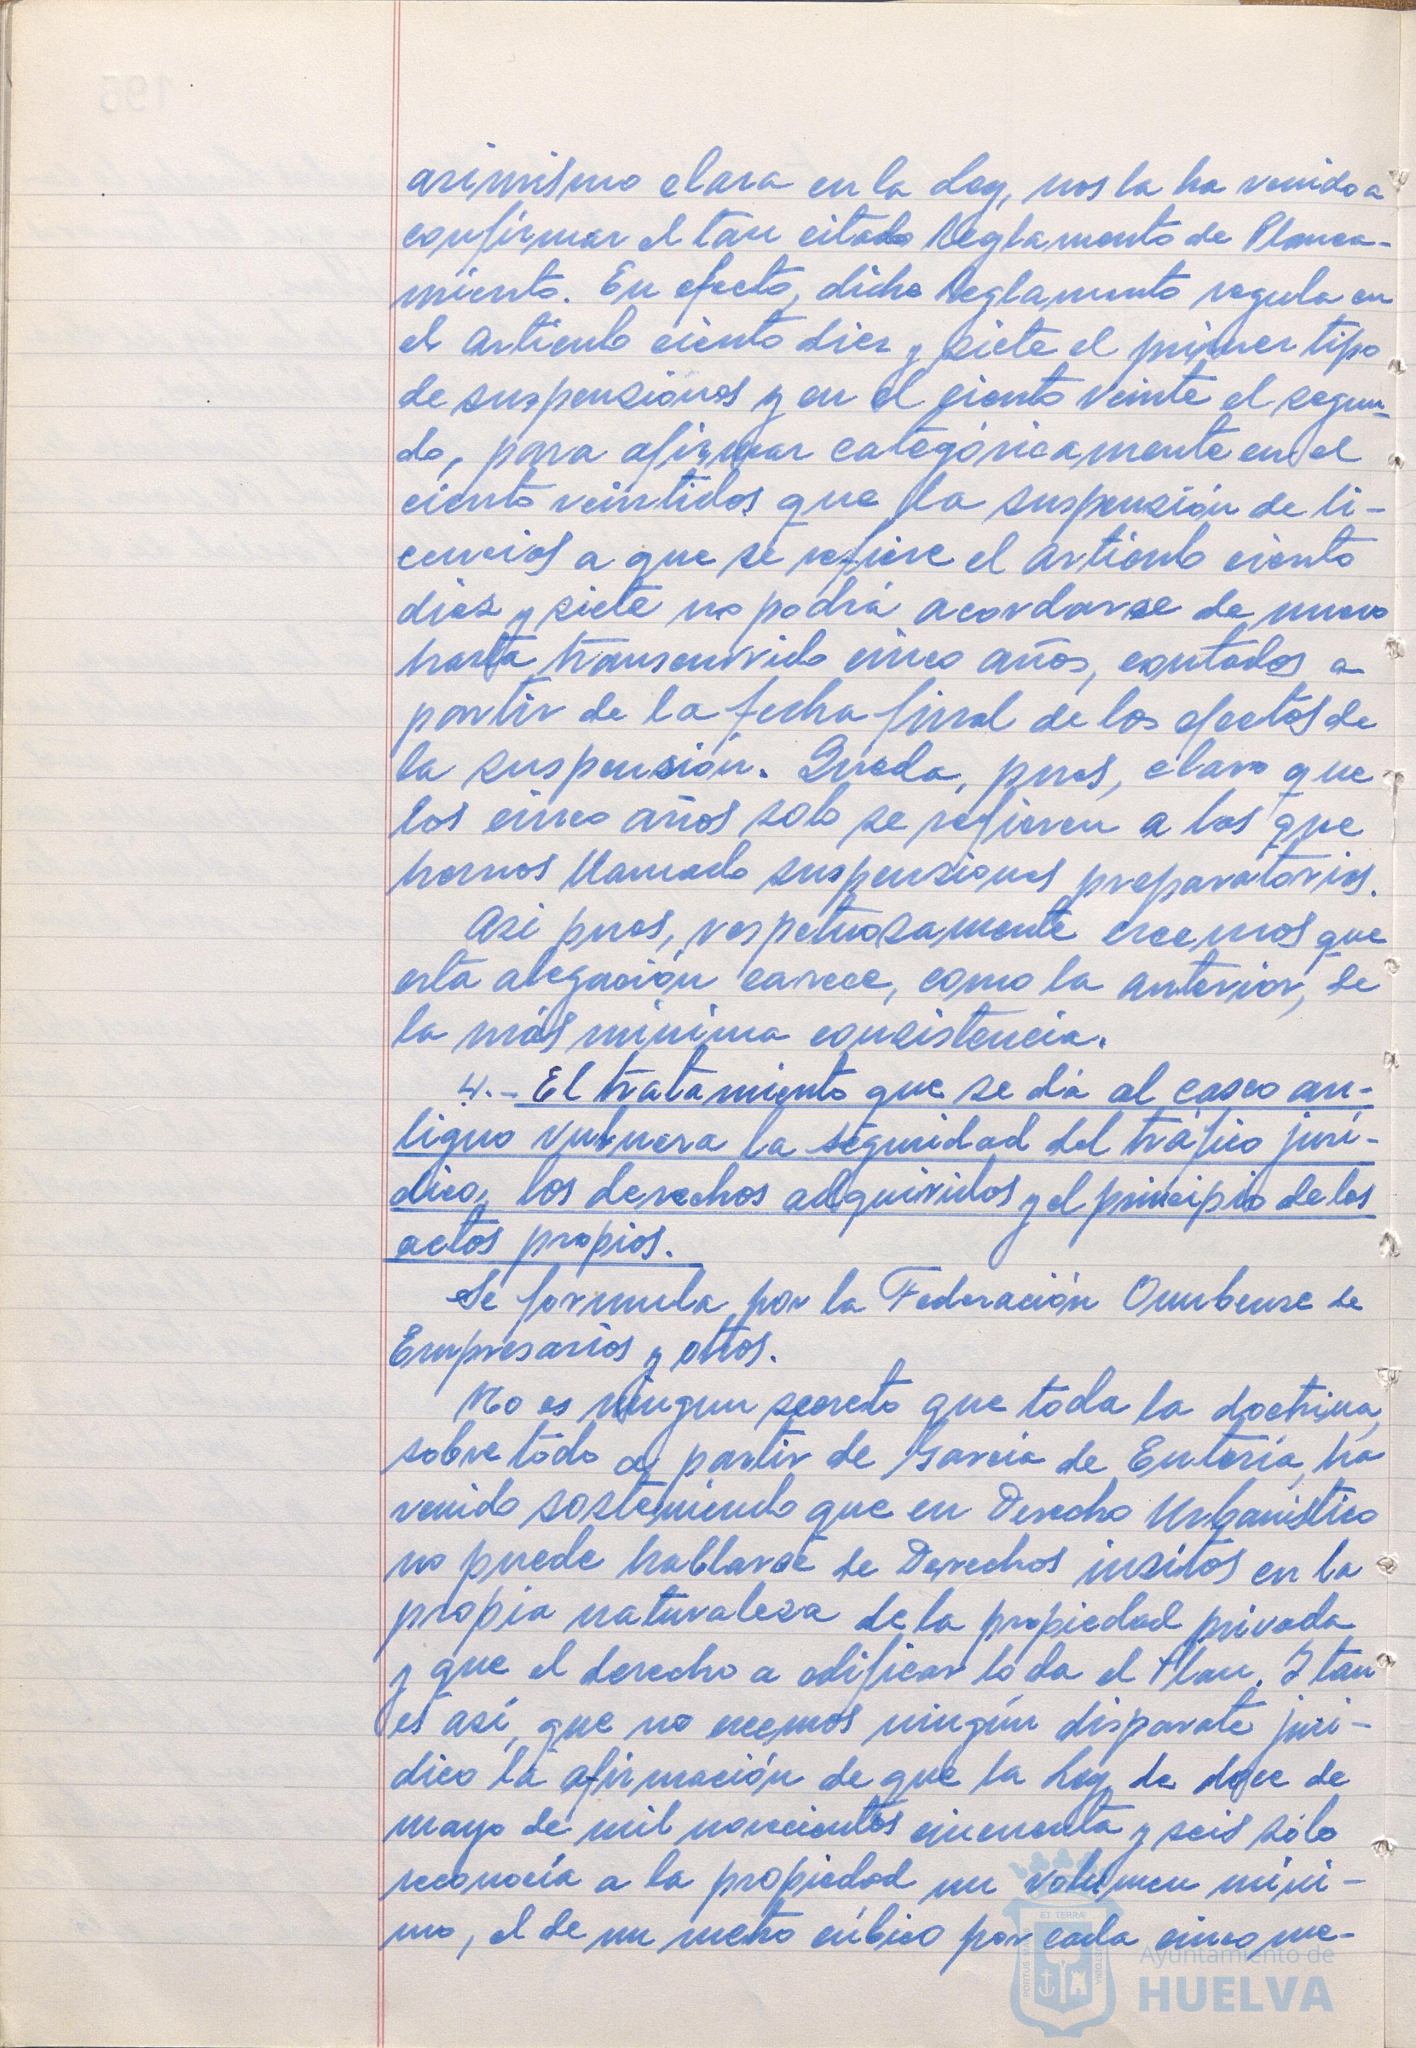 asimismo clara en la Ley, nos la ha venido a
confirmar el tan citado Reglamento de Planea-
miento. En efecto, dicho Reglamento regula en
el artículo ciento diez y siete el primer tipo
de suspensiones y en el ciento veinte el segun-
do, para afirmar categóricamente en el
ciento veintidos que la suspensión de li-
cencias a que se refiere el artículo ciento
diez y siete no podrá acordarse de nuevo
hasta transcurrido cinco años, contados a
partir de la fecha final de los efectos de
la suspensión. Queda, pues, claro que
los cinco años solo se refieren a las que
hemos llamado suspensiones preparatorias.
Asi pues, respetuosamente creemos que
esta alegación carece, como la anterior, de
la más minima consistencia.
4.- El tratamiento que se dá al casco an-
tiguo vulnera la seguridad del tráfico jurí-
dico, los derechos adquiridos y el principio de los
actos propios.
Se formula por la Federación Onubense de
Empresarios y otros.
No es ningun secreto que toda la doctrina,
sobre todo a partir de García de Enteria, ha
venido sosteniendo que en Derecho Urbanístico
no puede hablarse de Derechos insitos en la
propia naturaleza de la propiedad privada
y que el derecho a edificar lo da el Plan. Y tan
es así, que no creemos ningún disparate juri-
dico la afirmación de que la Ley de doce de
mayo de mil novecientos cincuenta y seis sólo
reconocía a la propiedad un volumen míni-
mo, el de un metro cúbico por cada cinco me-
ET TERRAE
PORTUS MARIS
CUSTODIA
Ayuntamiento de
HUELVA